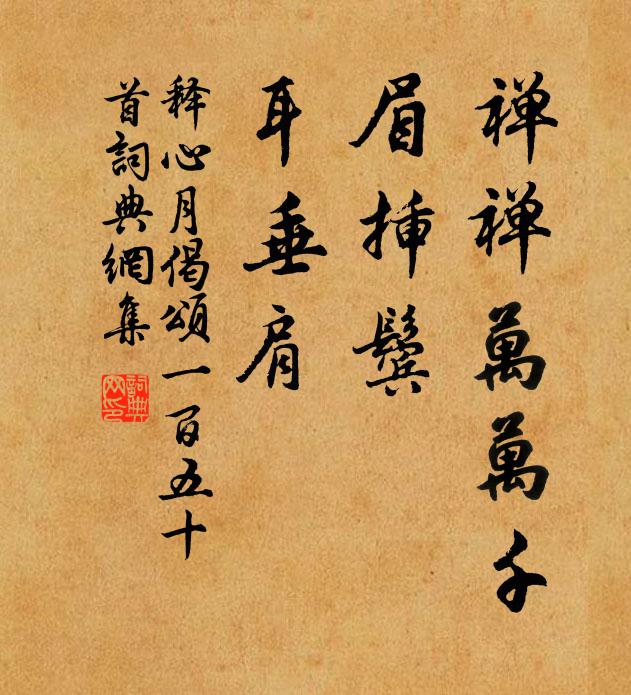 禅禅萬萬千
眉挿鬓
耳垂肩
释心月偈頌一百五十
首詞典網集
詞典网印